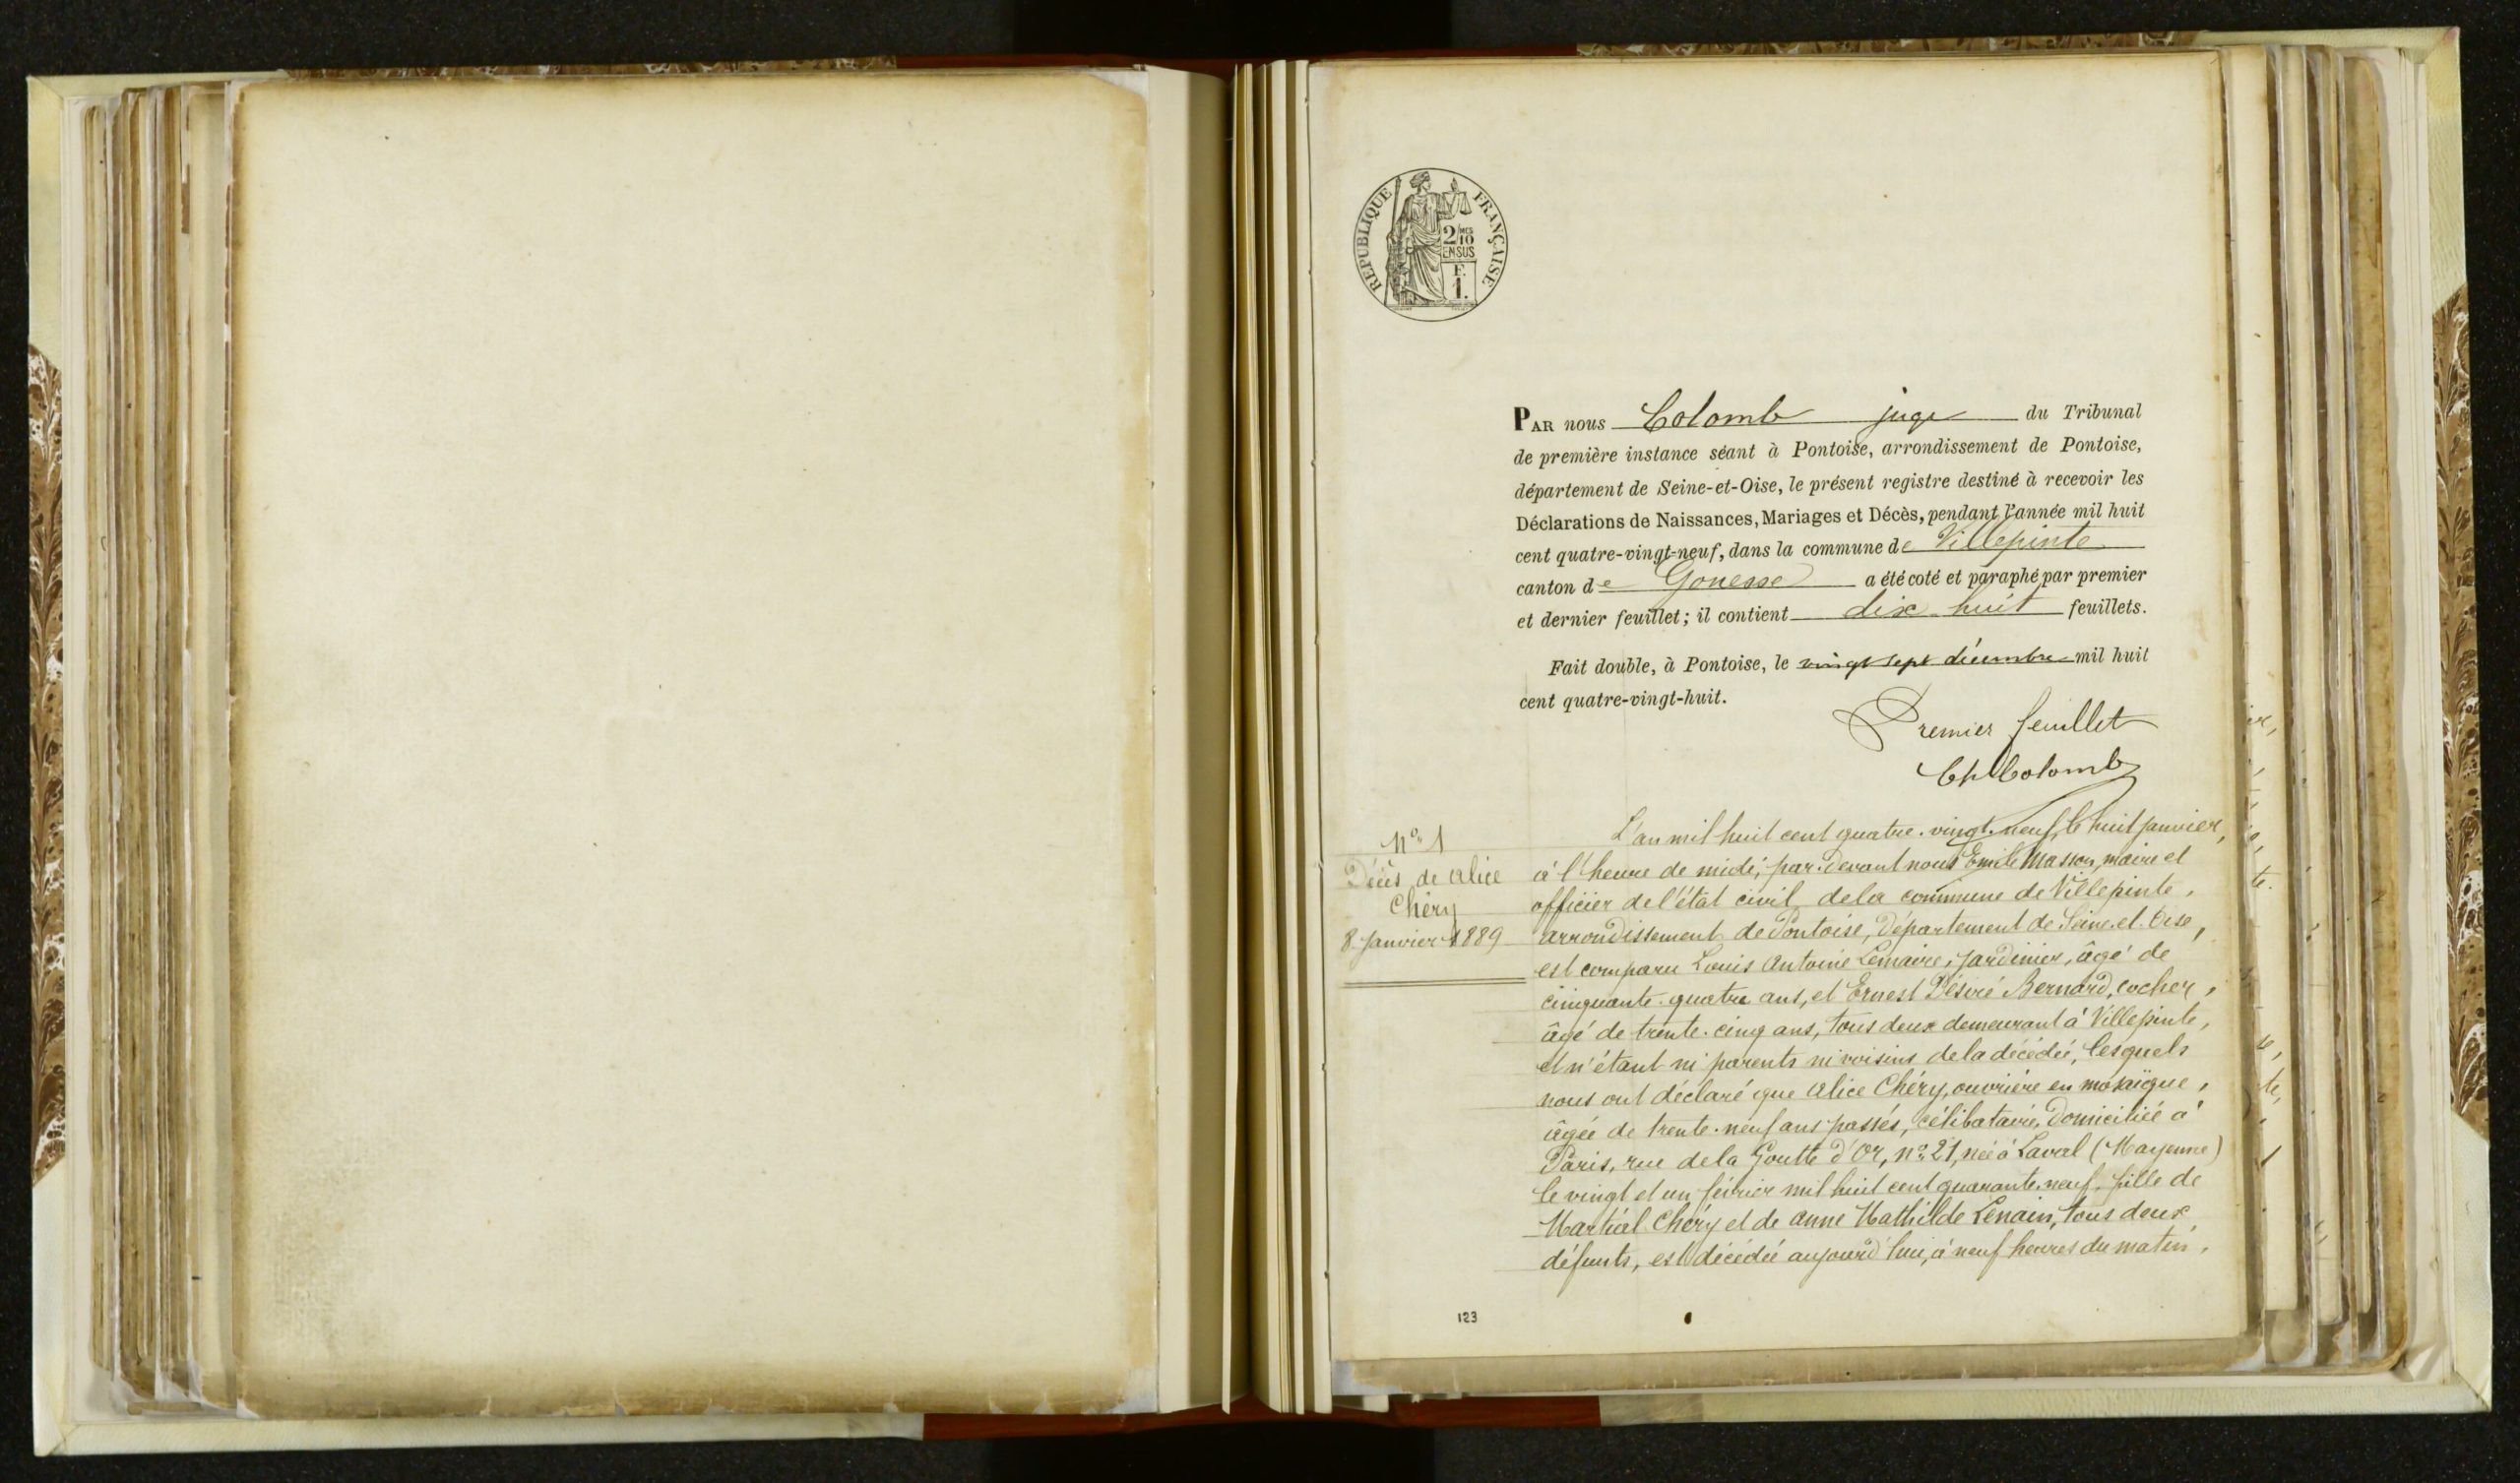 RÉPUBLIQUE FRANÇAISE
2/10 MES
EN SUS
F.
1.
PAR nous Colomb juge du Tribunal
de première instance séant à Pontoise, arrondissement de Pontoise,
département de Seine-et-Oise, le présent registre destiné à recevoir les
Déclarations de Naissances, Mariages et Décès, pendant l'année mil huit
cent quatre-vingt-neuf, dans la commune de Villepinte
canton de Gonesse a été coté et paraphé par premier
et dernier feuillet; il contient dix huit feuillets.
Fait double, à Pontoise, le vingt sept décembre mil huit
cent quatre-vingt-huit.
Premier feuillet
Ch Colomb
N° 1
Décès de Alice
Chéry
8 Janvier 1889
L'an mil huit cent quatre-vingt-neuf, le huit Janvier,
à l'heure de midi, par-devant nous Emile Masson, maire et
officier de l'état civil de la commune de Villepinte,
arrondissement de Pontoise, Département de Seine-et-Oise,
est comparu Louis Antoine Lemaire, jardinier, âgé de
cinquante-quatre ans, et Ernest Désiré Bernard, cocher,
âgé de trente-cinq ans, tous deux demeurant à Villepinte,
et n'étant ni parents ni voisins de la décédée, lesquels
nous ont déclaré que Alice Chéry, ouvrière en mosaïque,
âgée de trente-neuf ans passés, célibataire, Domiciliée à
Paris, rue de la Goutte d'Or, n° 21, née à Laval (Mayenne)
le vingt et un février mil huit cent quarante-neuf, fille de
Martial Chéry et de Anne Mathilde Lenain, tous deux
défunts, est décédée aujourd'hui, à neuf heures du matin,
123